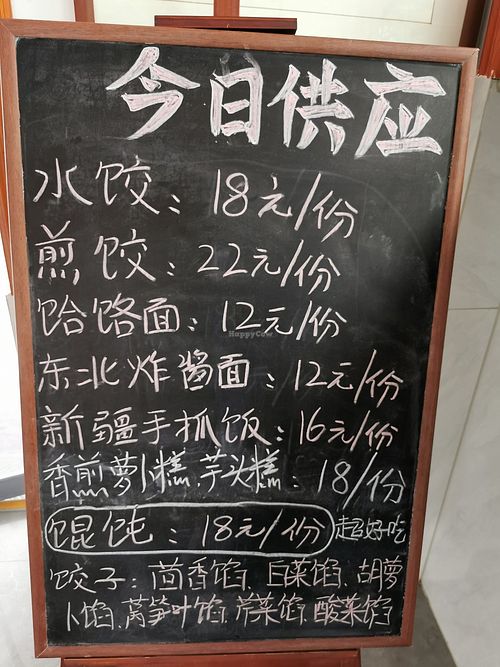 今日供应
水饺：18元/份
煎饺：22元/份
饸饹面：12元/份
东北炸酱面：12元/份
新疆手抓饭：16元/份
香煎萝卜糕.芋头糕：18/份
馄饨：18元/份 超好吃
饺子：茴香馅、白菜馅、胡萝
卜馅、莴笋叶馅、芹菜馅、酸菜馅
HappyCow